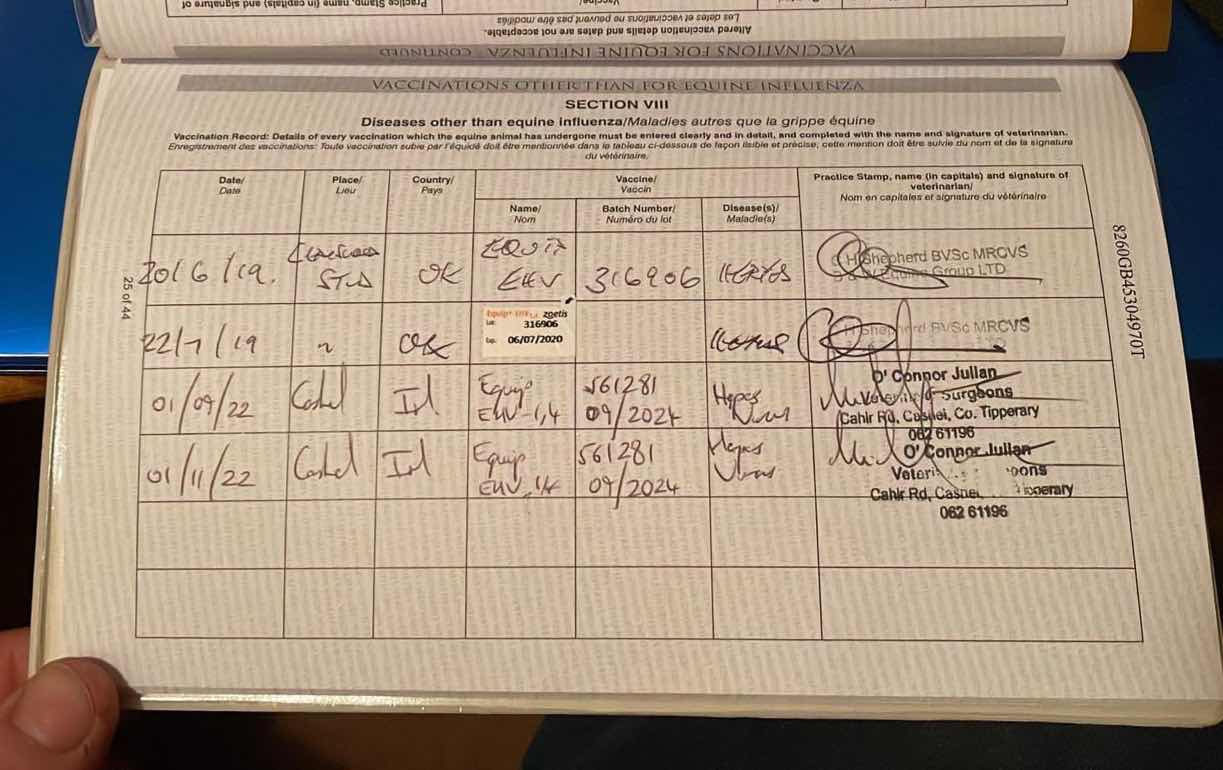 Practice Stamp, name (in capitals) and signature of
Vaccine/
Les dates et vaccinations ne peuvent pas être modifiés
Altered vaccination details and dates are not acceptable.
VACCINATIONS FOR EQUINE INFLUENZA - CONTINUED
VACCINATIONS OTHER THAN FOR EQUINE INFLUENZA
SECTION VIII
Diseases other than equine influenza/Maladies autres que la grippe équine
Vaccination Record: Details of every vaccination which the equine animal has undergone must be entered clearly and in detail, and completed with the name and signature of veterinarian.
Enregistrement des vaccinations: Toute vaccination subie par l'équidé doit être mentionnée dans le tableau ci-dessous de façon lisible et précise, cette mention doit être suivie du nom et de la signature
du vétérinaire.
Date/
Date
Place/
Lieu
Country/
Pays
Vaccine/
Vaccin
Name/
Nom
Batch Number/
Numéro du lot
Disease(s)/
Maladie(s)
Practice Stamp, name (in capitals) and signature of
veterinarian/
Nom en capitales et signature du vétérinaire
20/6/19.
STUD
UK
EQUIP
EHV
316906
HERPES
Shepherd BVSc MRCVS
Equine Group LTD
22/7/19
"
UK
Equip EHV 1,4 zoetis
Lot 316906
Exp. 06/07/2020
Shepherd BVSc MRCVS
01/09/22
Cashel
Irl
Equip
EHV-1,4
561281
09/2024
Herpes
Virus
O'Connor Julian
Veterinary Surgeons
Cahir Rd, Cashel, Co. Tipperary
062 61196
01/11/22
Cashel
Irl
Equip
EHV 1,4
561281
09/2024
Herpes
Virus
O'Connor Julian
Cahir Rd, Cashel, Tipperary
062 61196
25 of 44
8260GB45304970T